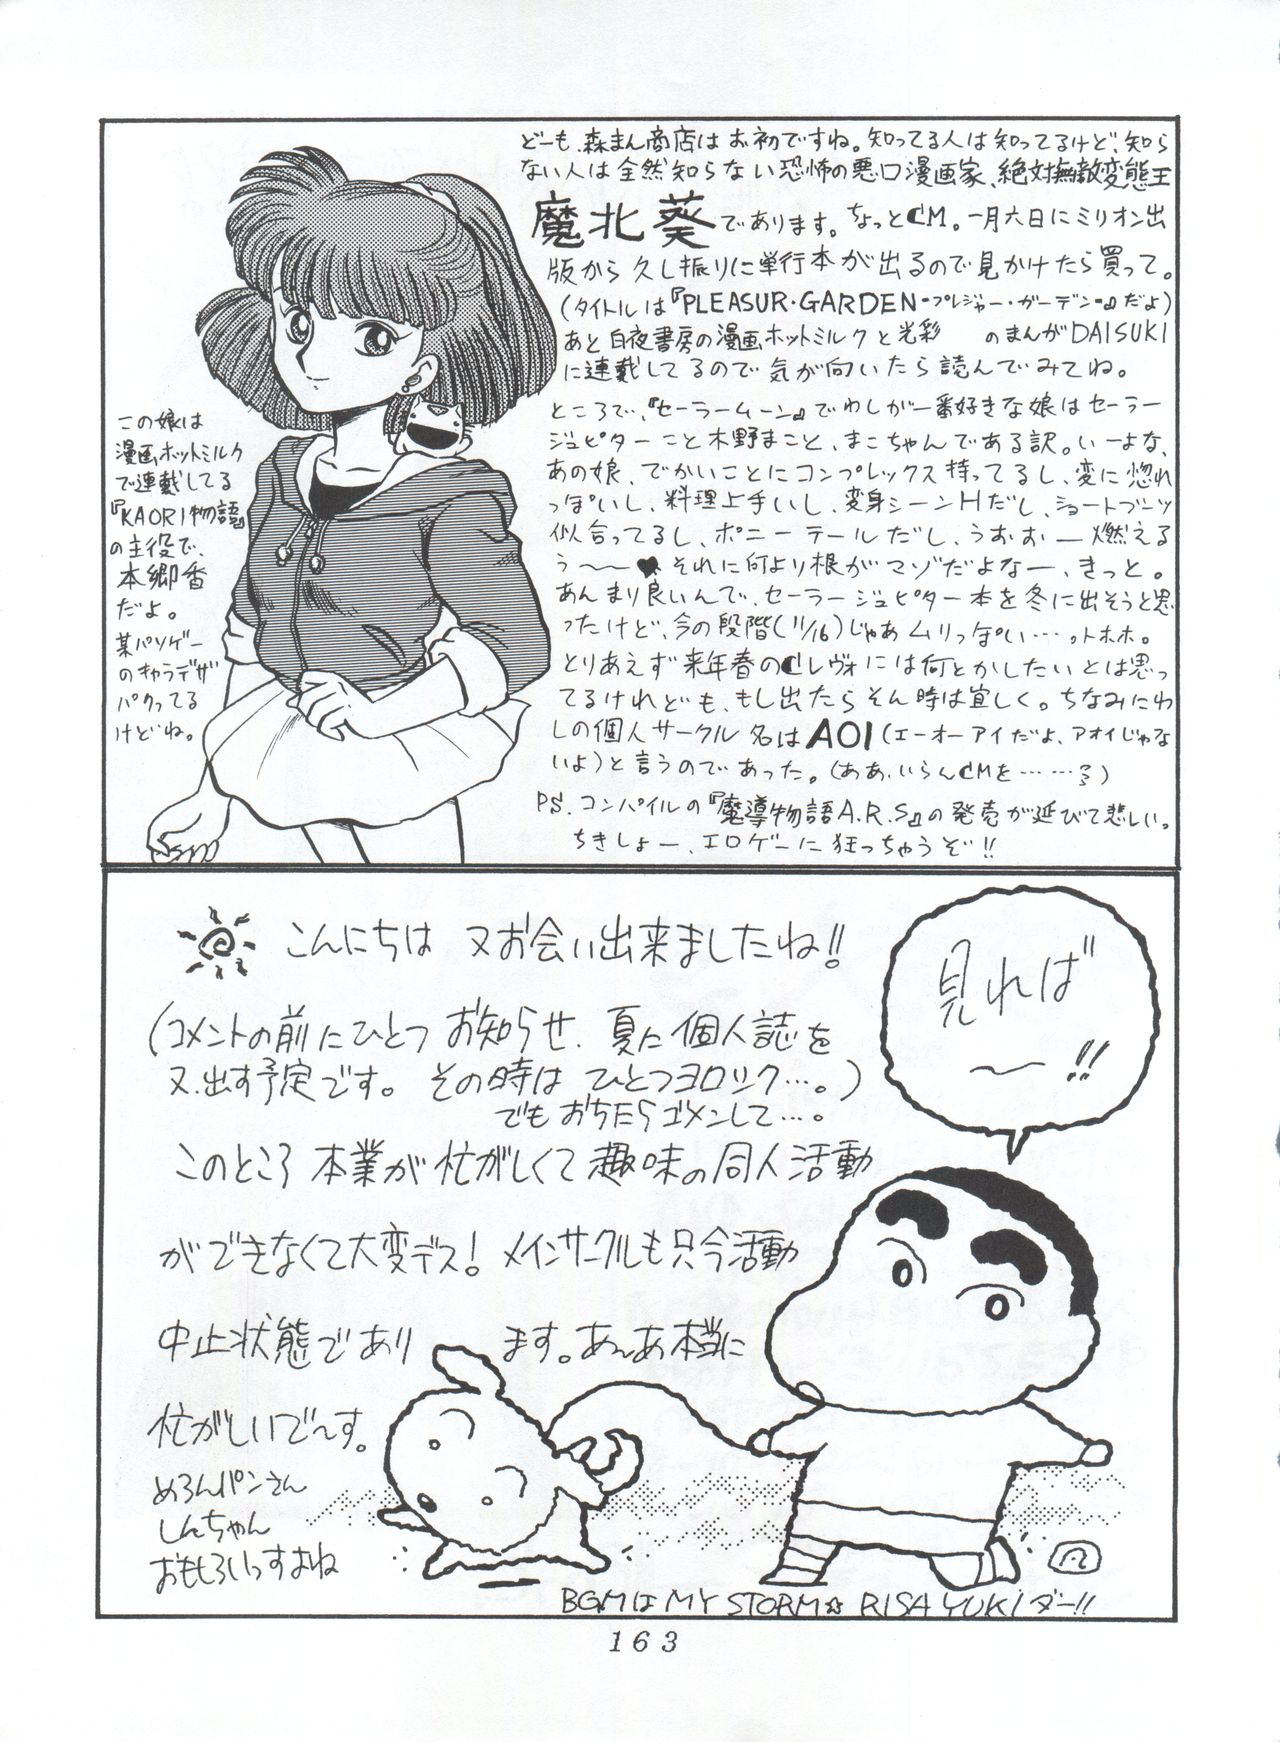 どーも、森まん商店はお初ですね。知ってる人は知ってるけど、知ら
ない人は全然知らない恐怖の悪口漫画家、絶対無敵変態王
魔北葵であります。ちょっとCM。一月六日にミリオン出
版から久し振りに単行本が出るので見かけたら買って。
(タイトルは『PLEASUR・GARDEN・プレジャー・ガーデン・』だよ)
あと白夜書房の漫画ホットミルクと光彩 のまんがDAISUKI
に連載してるので気が向いたら読んでみてね。
ところで、『セーラームーン』でわしが一番好きな娘はセーラー
ジュピターこと木野まこと、まこちゃんである訳。いーよな、
あの娘、でかいことにコンプレックス持ってるし、変に惚れ
っぽいし、料理上手いし、変身シーンHだし、ショートブーツ
似合ってるし、ポニーテールだし、うおぉー燃える
う〜〜♥それに何より根がマゾだよなー、きっと。
あんまり良いんで、セーラージュピター本を冬に出そうと思
ったけど、今の段階(11/16)じゃあムリっぽい…。トホホ。
とりあえず来年春のCレヴォには何とかしたいとは思っ
てるけれども、もし出たらそん時は宜しく。ちなみにわ
しの個人サークル名はAOI(エーオーアイだよ、アオイじゃな
いよ)と言うのであった。(ああ、いらんCMを……る)
PS.コンパイルの『魔導物語A.R.S』の発売が延びて悲しいっ
ちきしょー、エロゲーに狂っちゃうぞ!!
この娘は
漫画ホットミルク
で連載してる
『KAORI物語』
の主役で、
本郷香
だよ。
某パソゲー
のキャラデザ
パクってる
けどね。
こんにちは 又お会い出来ましたね!!
(コメントの前にひとつ お知らせ、夏に個人誌を
又、出す予定です。その時は ひとつヨロシク…。)
でもおちたらゴメンして…。
このところ 本業が忙がしくて趣味の同人活動
ができなくて大変デス! メインサークルも只今活動
中止状態であり ます。あんあ本当に
忙がしいで〜す。
めろんパンさん
しんちゃん
おもしろいっすよね
見れば
〜!!
BGMはMY STORM☆RISA YUKIダー!!
163